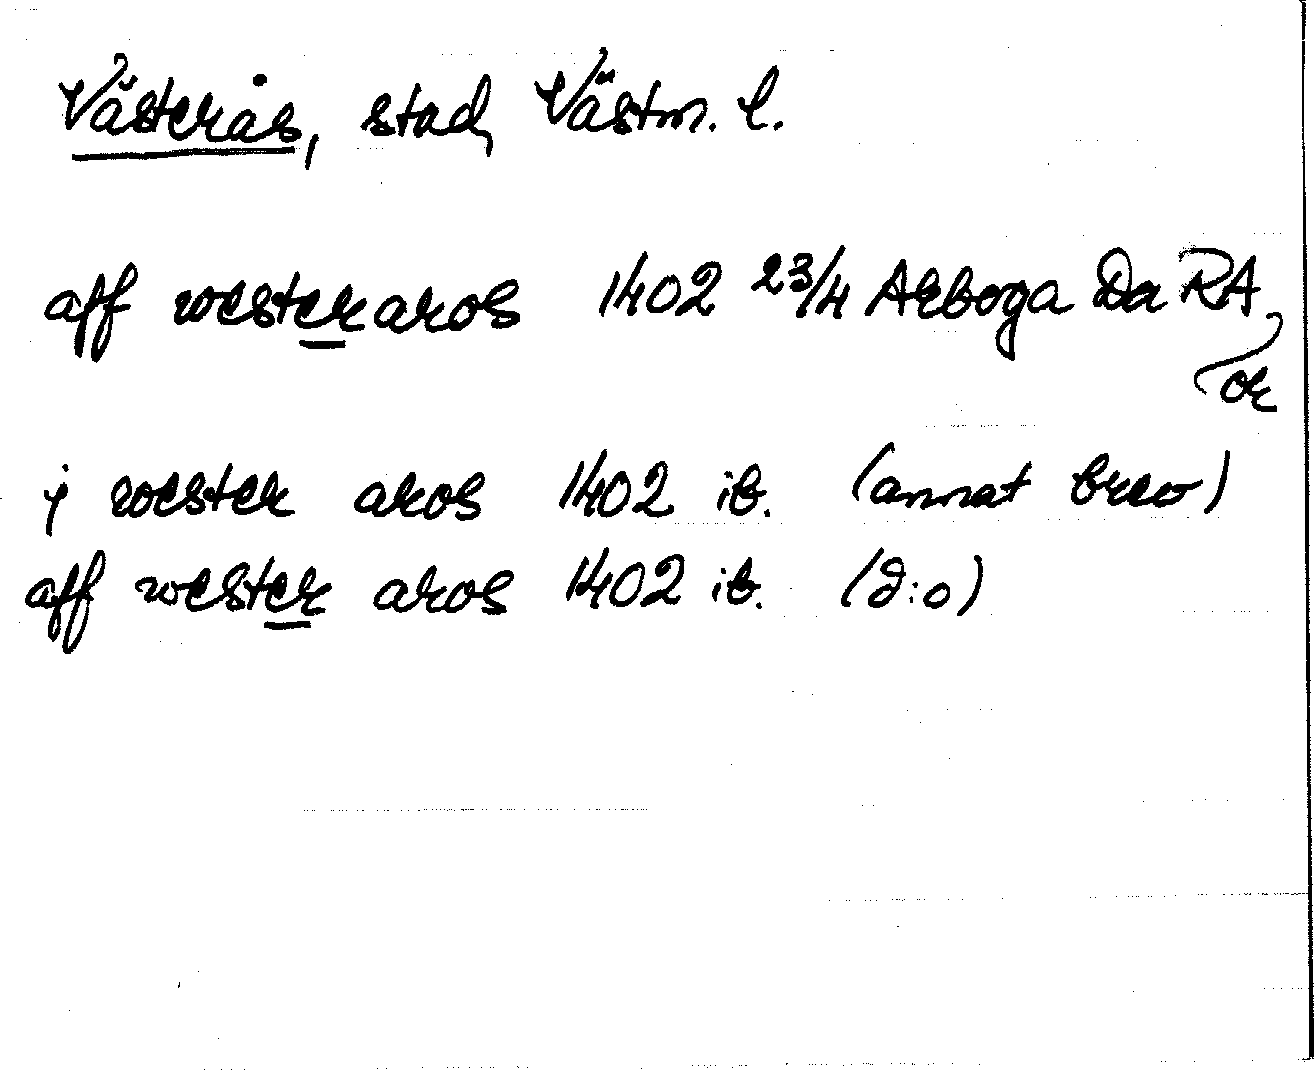 Västerås, stad, Västm. l.
aff westeraros 1402 23/4 Arboga Da RA,
or
j wester aros 1402 ib. (annat brev)
aff wester aros 1402 ib. (d:o)